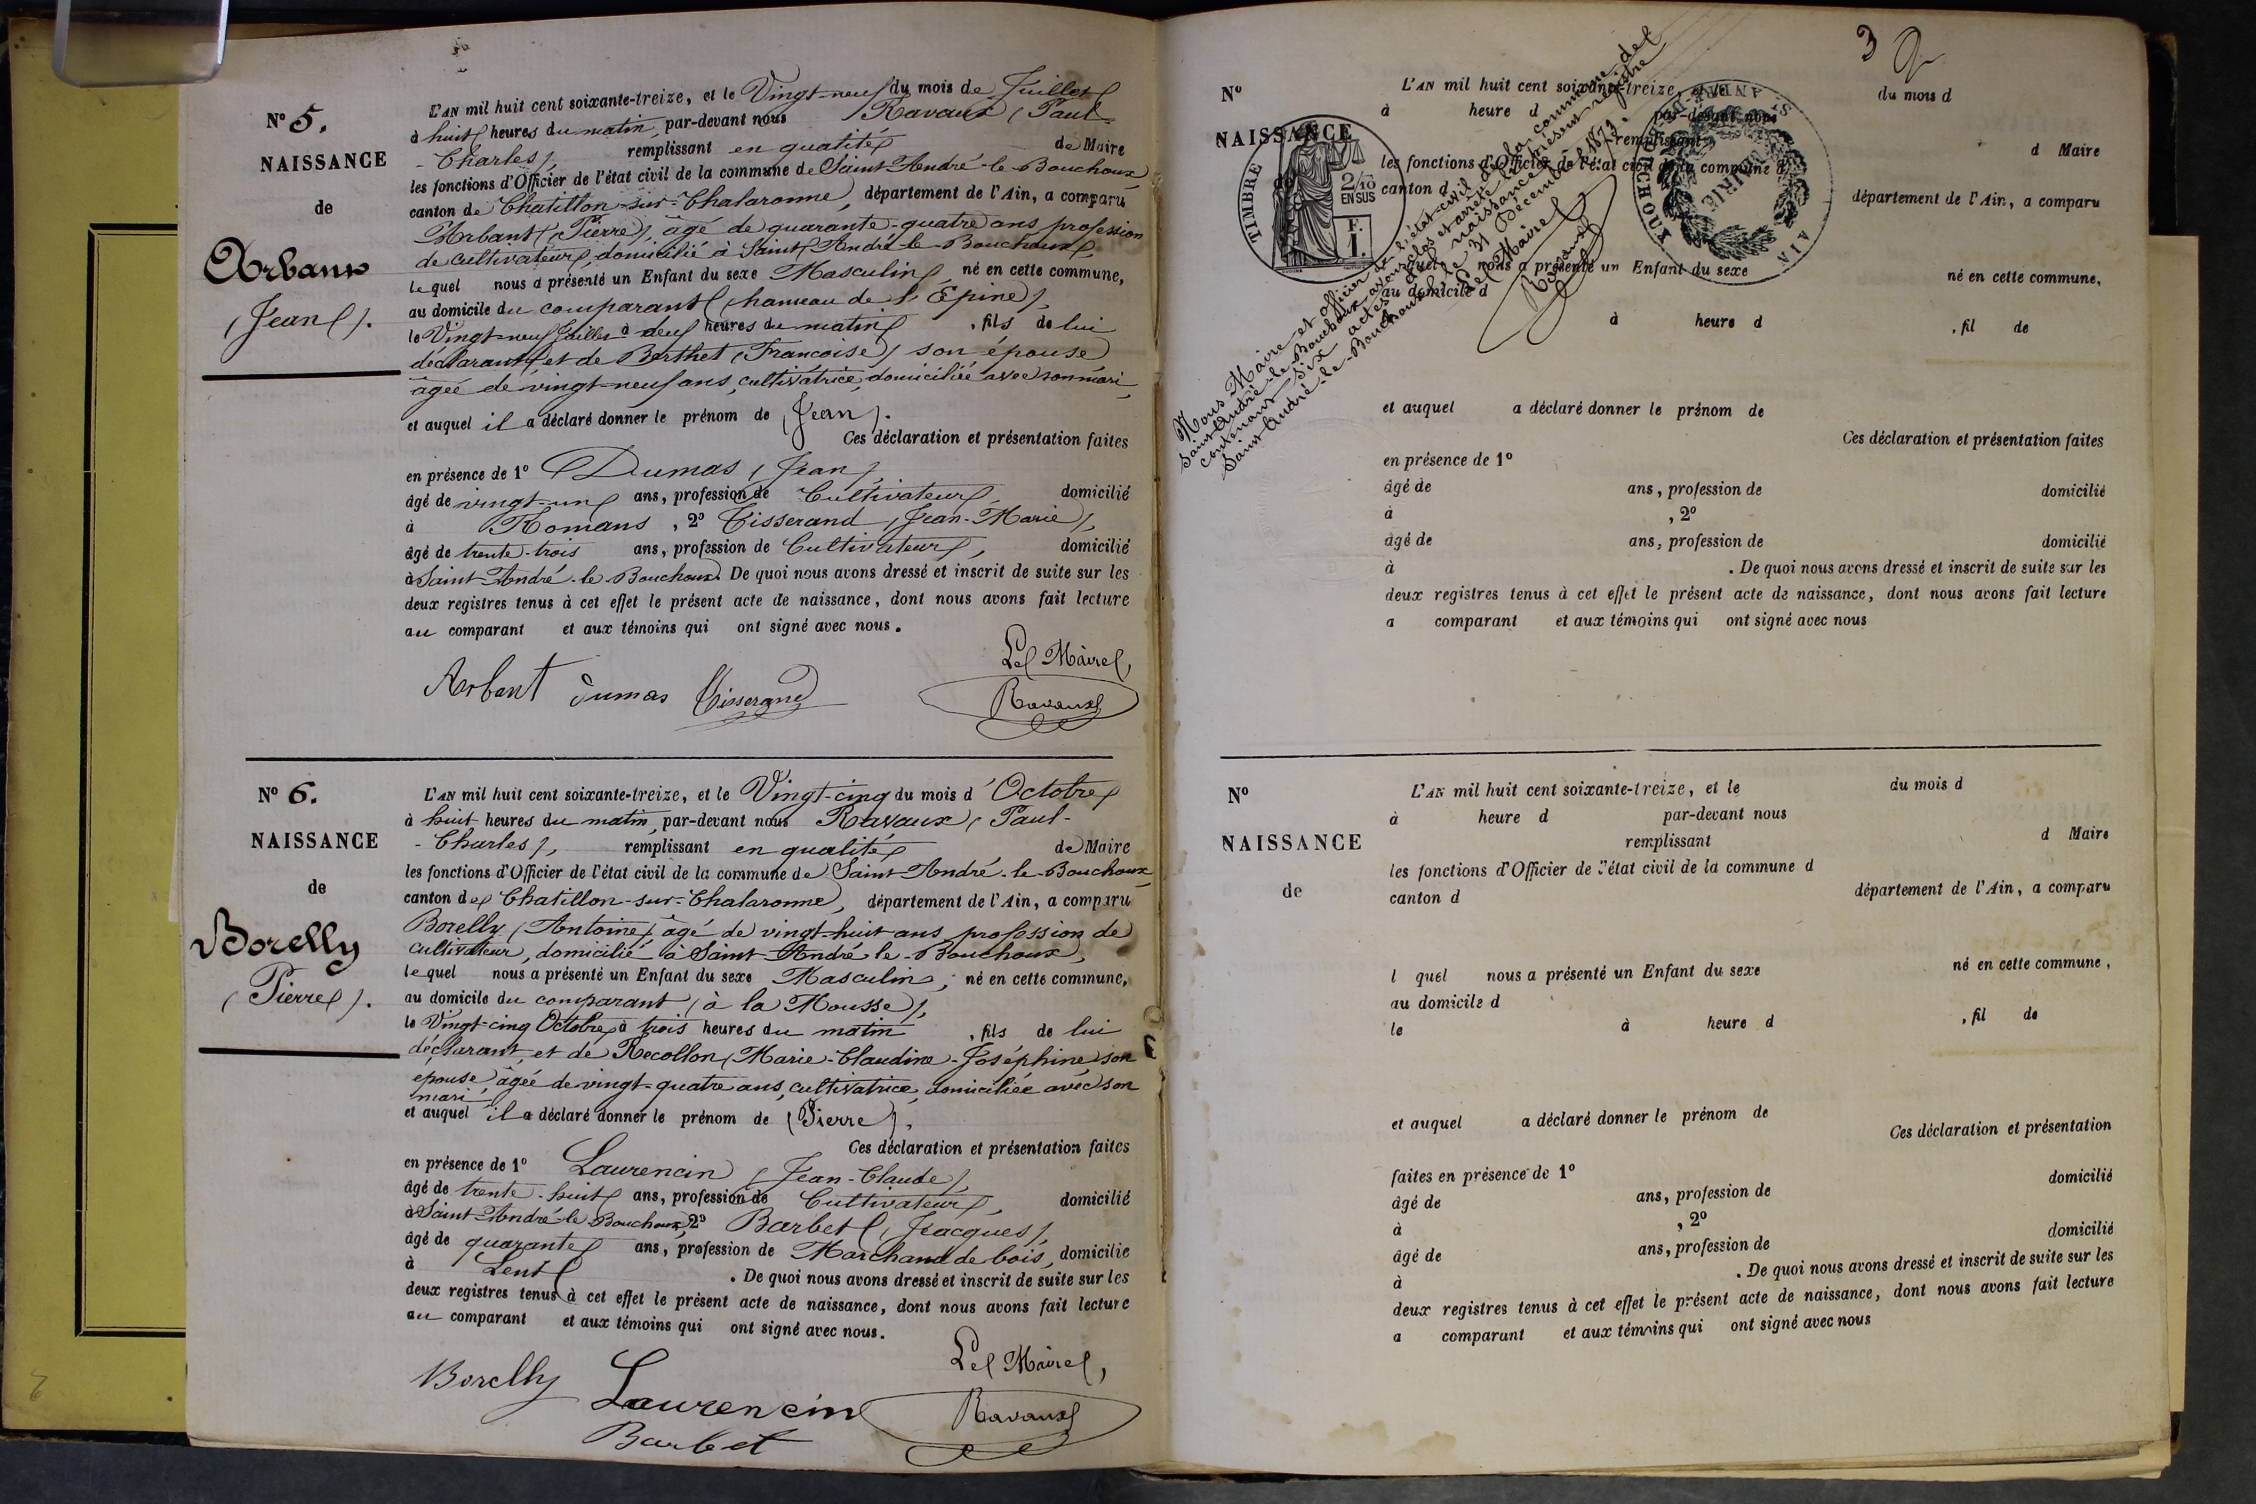 N° 5.
NAISSANCE
de
Arbant
(Jean).
L'AN mil huit cent soixante-treize, et le Vingt-neuf du mois de Juillet
à huit heures du matin, par-devant nous Ravaux (Paul-
-Charles), remplissant en qualité de Maire
les fonctions d'Officier de l'état civil de la commune de Saint-André-le-Bouchoux,
canton de Chatillon-sur-Chalaronne, département de l'Ain, a comparu
Arbant (Pierre), âgé de quarante-quatre ans profession
de cultivateur, domicilié à Saint-André-le-Bouchoux,
lequel nous a présenté un Enfant du sexe Masculin, né en cette commune,
au domicile du comparant (hameau de l'Épine),
le Vingt-neuf Juillet à deux heures du matin, fils de lui
déclarant et de Berthet (Françoise) son épouse
âgée de vingt-neuf ans, cultivatrice, domiciliée avec son mari,
et auquel il a déclaré donner le prénom de (Jean).
Ces déclaration et présentation faites
en présence de 1° Dumas (Jean),
âgé de vingt-un ans, profession de Cultivateur, domicilié
à Romans, 2° Tisserand (Jean-Marie),
âgé de trente-trois ans, profession de Cultivateur, domicilié
à Saint-André-le-Bouchoux. De quoi nous avons dressé et inscrit de suite sur les
deux registres tenus à cet effet le présent acte de naissance, dont nous avons fait lecture
au comparant et aux témoins qui ont signé avec nous.
Le Maire,
Arbant Dumas Tisserand Ravaux
N° 6.
NAISSANCE
de
Borelly
(Pierre).
L'AN mil huit cent soixante-treize, et le Vingt-cinq du mois d'Octobre
à huit heures du matin, par-devant nous Ravaux (Paul-
-Charles), remplissant en qualité de Maire
les fonctions d'Officier de l'état civil de la commune de Saint-André-le-Bouchoux,
canton de Chatillon-sur-Chalaronne, département de l'Ain, a comparu
Borelly (Antoine) âgé de vingt-huit ans profession de
cultivateur, domicilié à Saint-André-le-Bouchoux,
lequel nous a présenté un Enfant du sexe Masculin, né en cette commune,
au domicile du comparant (à la Mousse),
le Vingt-cinq Octobre à trois heures du matin, fils de lui
déclarant et de Recollon (Marie-Claudine-Joséphine) son
épouse, âgée de vingt-quatre ans, cultivatrice, domiciliée avec son
mari
et auquel il a déclaré donner le prénom de (Pierre).
Ces déclaration et présentation faites
en présence de 1° Laurencin (Jean-Claude),
âgé de trente-huit ans, profession de Cultivateur, domicilié
à Saint-André-le-Bouchoux, 2° Barbet (Jacques),
âgé de quarante ans, profession de Marchand de bois, domicilié
à Lent. De quoi nous avons dressé et inscrit de suite sur les
deux registres tenus à cet effet le présent acte de naissance, dont nous avons fait lecture
au comparant et aux témoins qui ont signé avec nous.
Le Maire,
Borelly Laurencin Ravaux
Barbet
3
N°
NAISSANCE
de
TIMBRE
2/10
EN SUS
F.
1.
MAIRIE
AIN
Nous Maire et officier de l'état-civil de la commune de
Saint-André-le-Bouchoux avons clos et arrêté le présent registre
contenant six actes de naissance
Saint-André-le-Bouchoux le 31 Décembre 1873.
Le Maire
Ravaux
L'AN mil huit cent soixante-treize, et le du mois d
à heure d par-devant nous
remplissant d Maire
les fonctions d'Officier de l'état civil de la commune d
canton d département de l'Ain, a comparu
l quel nous a présenté un Enfant du sexe né en cette commune,
au domicile d
à heure d , fil de
et auquel a déclaré donner le prénom de
Ces déclaration et présentation faites
en présence de 1°
âgé de ans, profession de domicilié
à , 2°
âgé de ans, profession de domicilié
à . De quoi nous avons dressé et inscrit de suite sur les
deux registres tenus à cet effet le présent acte de naissance, dont nous avons fait lecture
a comparant et aux témoins qui ont signé avec nous
N°
NAISSANCE
de
L'AN mil huit cent soixante-treize, et le du mois d
à heure d par-devant nous
remplissant d Maire
les fonctions d'Officier de l'état civil de la commune d
canton d département de l'Ain, a comparu
l quel nous a présenté un Enfant du sexe né en cette commune,
au domicile d
le à heure d , fil de
et auquel a déclaré donner le prénom de
Ces déclaration et présentation
faites en présence de 1° domicilié
âgé de ans, profession de
à , 2° domicilié
âgé de ans, profession de
à . De quoi nous avons dressé et inscrit de suite sur les
deux registres tenus à cet effet le présent acte de naissance, dont nous avons fait lecture
a comparant et aux témoins qui ont signé avec nous